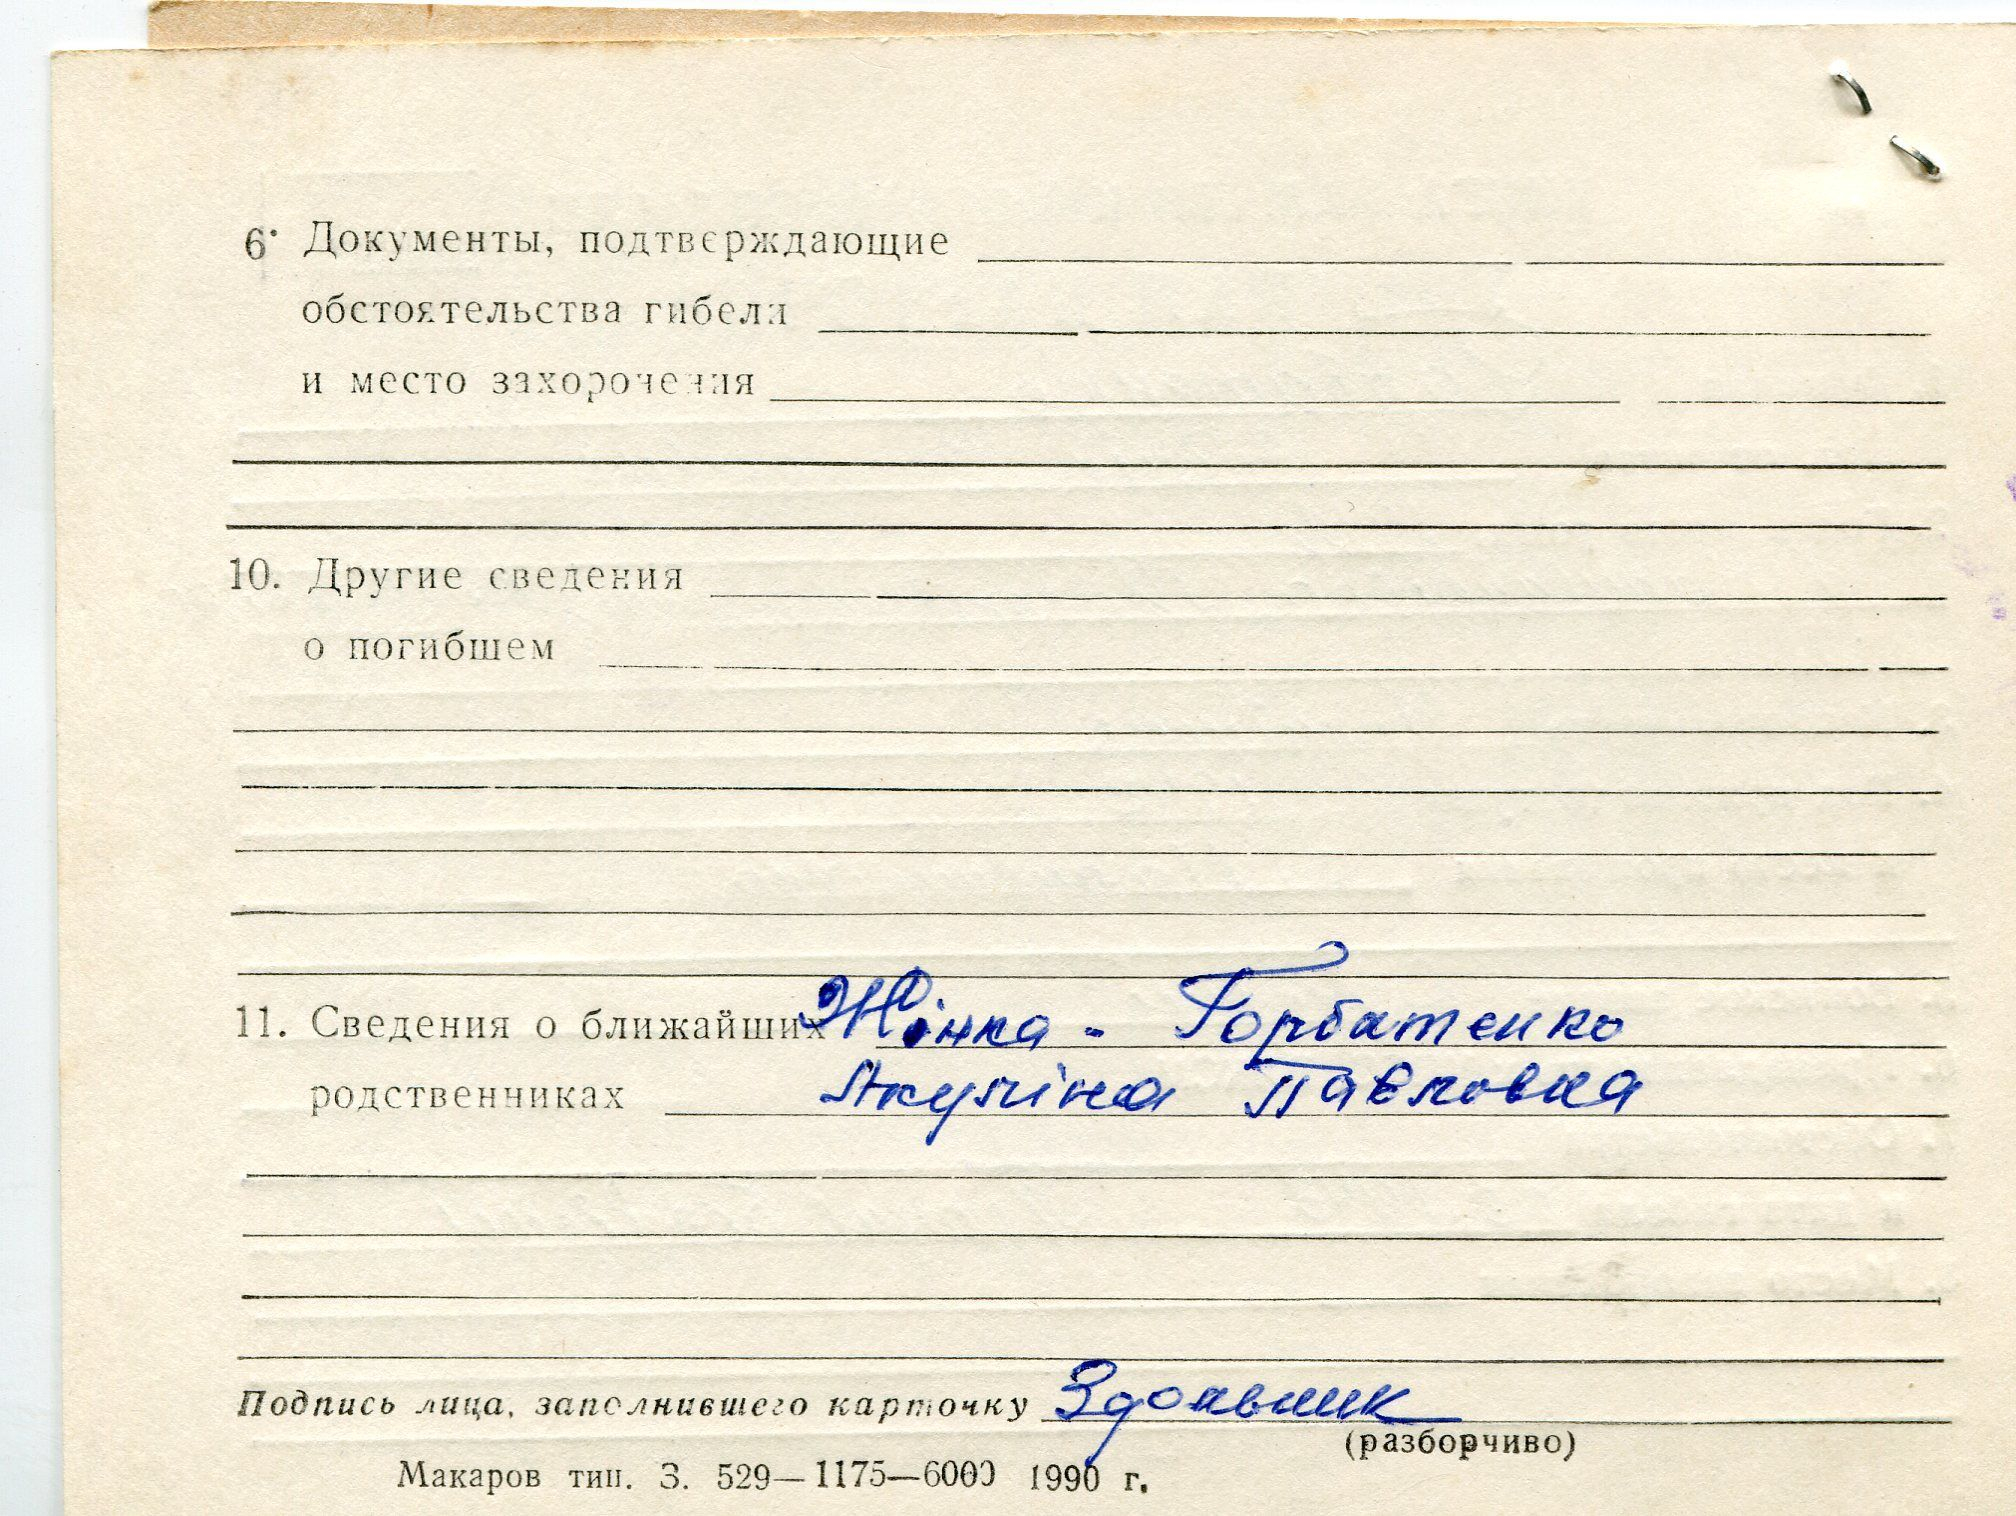 6. Документы, подтверждающие
обстоятельства гибели
и место захоронения
10. Другие сведения
о погибшем
11. Сведения о ближайших Жінка - Горбатенко
родственниках Акуліна Павловна
Подпись лица, заполнившего карточку
(разборчиво)
Макаров тип. З. 529—1175—6000 1990 г.